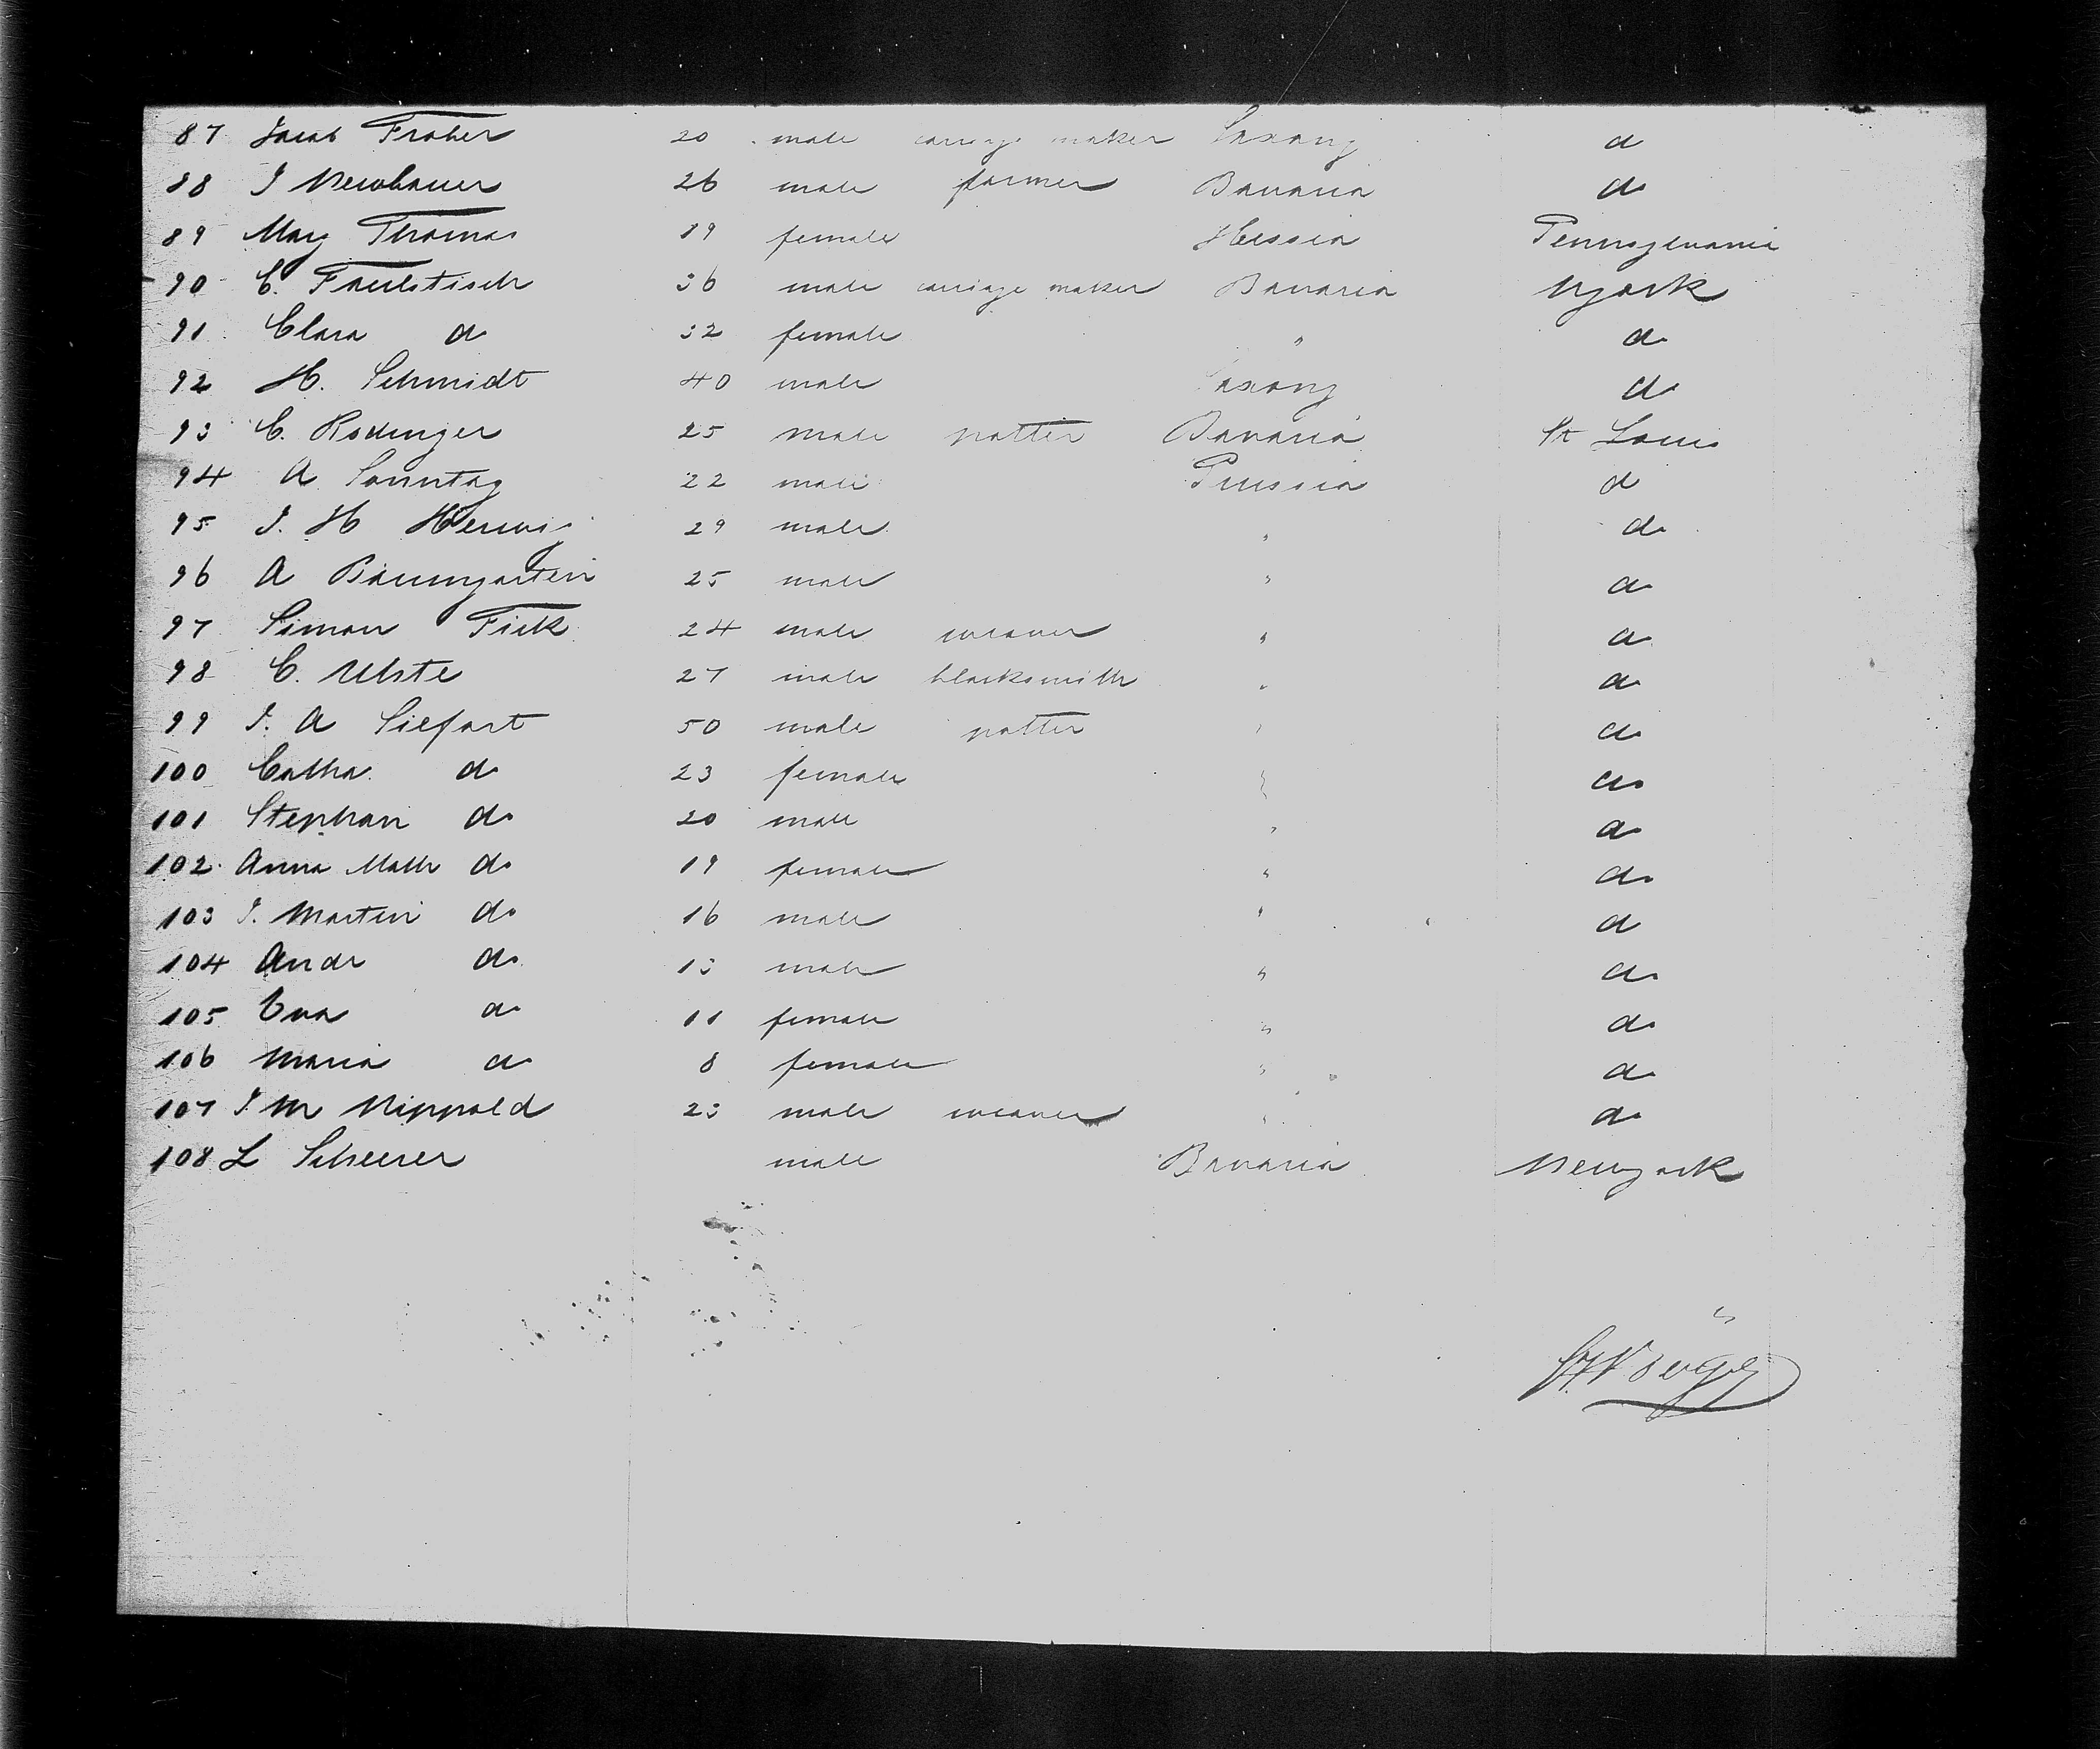 87 Jacob Fraber 20 male carriage maker Saxony d
88 J Newbauer 26 male farmer Bavaria do
89 May Thomas 19 female Hessia Pennsylvania
90 C. Faulstisch 36 male carriage maker Bavaria NYork
91 Clara do 32 female " do
92 H. Schmidt 40 male Saxony do
93 C. Rodinger 25 male potter Bavaria St Louis
94 A Sonntag 22 male Prussia d
95 J. H Herwig 29 male " do
96 A Baumgarten 25 male " do
97 Simon Fick 24 male weaver " do
98 C. Uhste 27 male blacksmith " do
99 J. A Siefart 50 male potter " do
100 Catha. do 23 female " do
101 Stephan do 20 male " do
102 Anna Math do 19 female " do
103 J. Martin do 16 male " do
104 Andr do 13 male " do
105 Eva do 11 female " do
106 Maria do 8 female " do
107 J. M Nippold 23 male weaver " do
108 L Scheerer male Bavaria Newyork